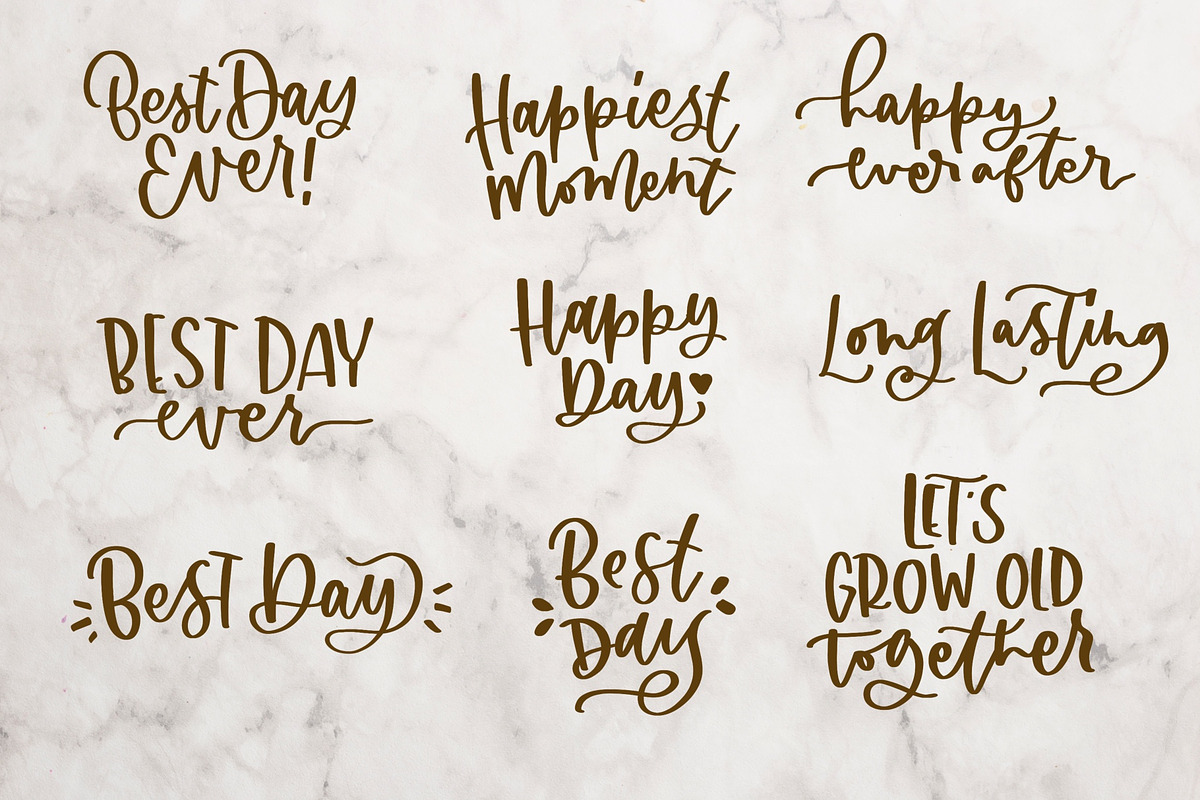 Best Day
Ever!
Happiest
Moment
happy
ever after
BEST DAY
ever
Happy
Day
Long Lasting
Best Day
Best
Day
LET'S
GROW OLD
together